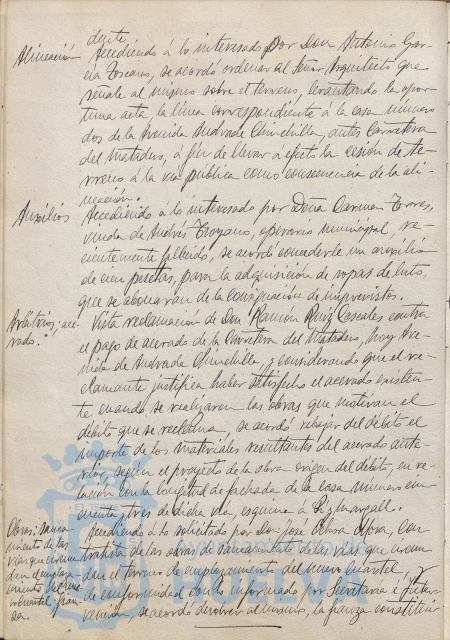 dente.
Alineación Accediendo á lo interesado por Don Antonio Gar-
cía Toscano, se acordó ordenar al Señor Arquitecto que
señale al mismo sobre el terreno, levantando la opor-
tuna acta, la línea correspondiente á la casa número
dos de la Avenida Andrade Chinchilla, antes Carretera
del Matadero, á fin de llevar á efecto la cesión de te-
rreno á la vía pública como consecuencia de la ali-
neación.
Auxilios Accediendo á lo interesado por Doña Carmen Torres,
viuda de Andrés Troyano, operario municipal, re-
cientemente fallecido, se acordó concederle un auxilio
de cien pesetas, para la adquisición de ropas de luto,
que se abonarán de la consignación de imprevistos.
Arbitrios; ace-
rado. Vista reclamación de Don Ramón Ruiz Cascales contra
el pago de acerado de la Carretera del Matadero, hoy Ave-
nida de Andrade Chinchilla, y considerando que el re-
clamante justifica haber satisfecho el acerado existen-
te cuando se realizaron las obras que motivan el
débito que se reclama, se acordó rebajar del débito el
importe de los materiales resultantes del acerado ante-
rior según el proyecto de la obra origen del débito, en re-
lación con la longitud de fachada de la casa número cin-
cuenta y tres de dicha vía, esquina á Pi y Margall.
Obras; sanea-
miento de las
vías que circun-
dan el emplaza-
miento del nue-
vo cuartel; fian-
za.
Accediendo á lo solicitado por Don José Ochoa, con-
tratista de las obras de saneamiento de las vías que circun-
dan el terreno de emplazamiento del nuevo cuartel, y
de conformidad con lo informado por Secretaría é Inter-
vención, se acordó devolver al mismo, la fianza constitui-